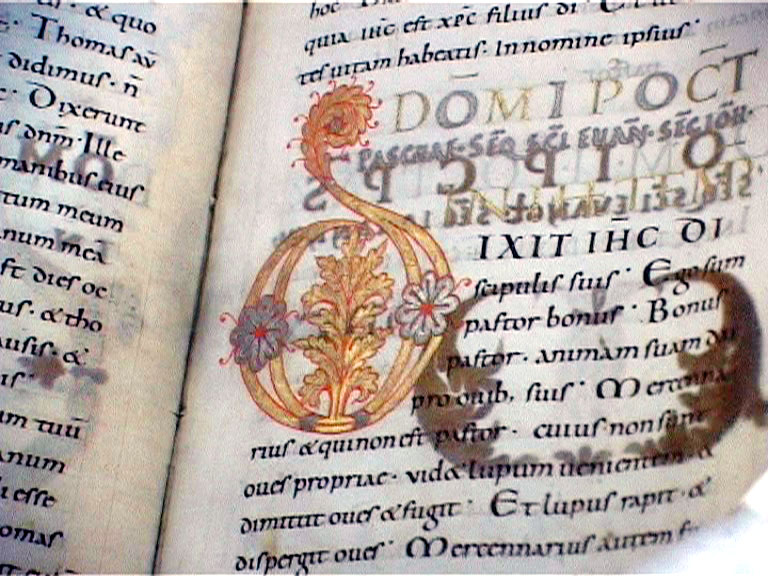 · & quo
· Thomas aū
didimus · n̄
· Dixerunt
dnm̄ · Ille
manibus eius
tum meum
num meā
dies oc
us · & tho
ausis · &
is ·
um tuū
anum
esse
omas
hoc
quia ihc est xpc filius di
tes uitam habeatis · In nomine ipsius ·
DOM I POCT
PASCHAE · SEQ SCI EUAN · SEC IOH ·
DIXIT IHC DI
scipulis suis · Ego sum
pastor bonus · Bonus
pastor · animam suam dat
pro ouib, suis · Mercenna
rius & qui non est pastor · cuius non sunt
oues propriae · uid& lupum uenientem · &
dimittit oues & fugit · Et lupus rapit · &
dispergit oues · Mercennarius autem f